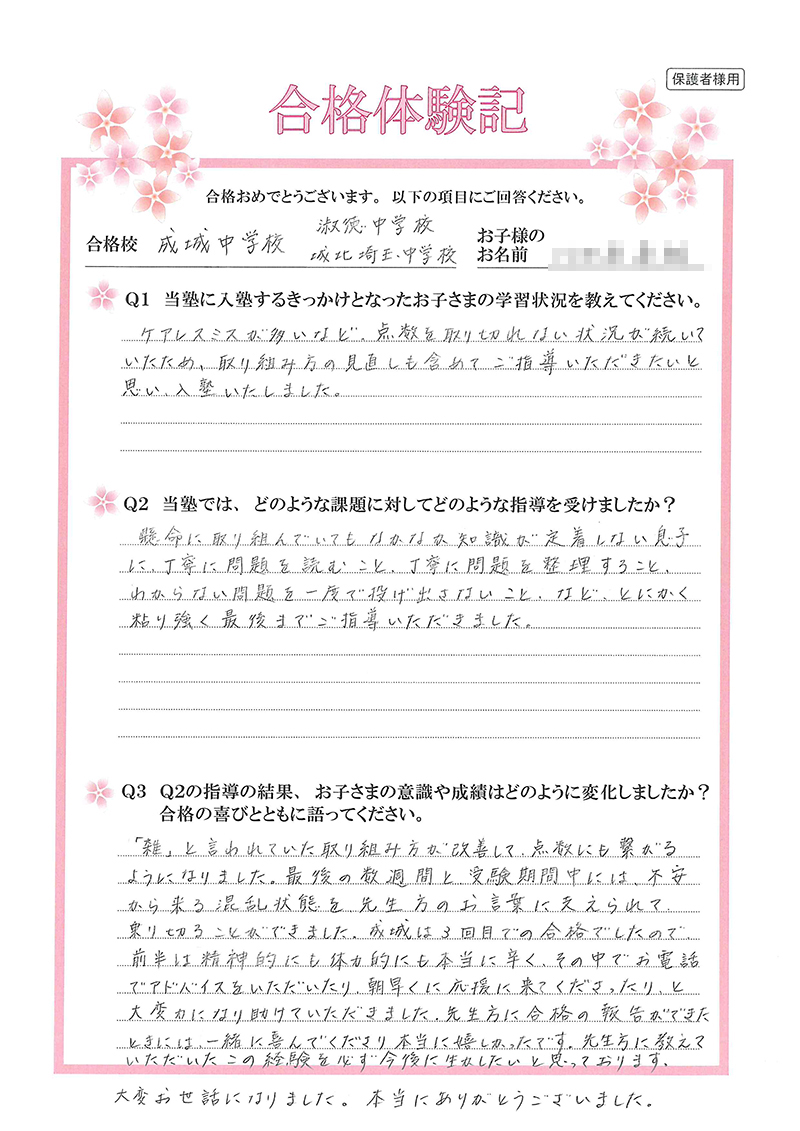 保護者様用
合格体験記
合格おめでとうございます。以下の項目にご回答ください。
合格校 成城中学校 淑徳中学校
城北埼玉中学校
お子様の
お名前
Q1 当塾に入塾するきっかけとなったお子さまの学習状況を教えてください。
ケアレスミスが多いなど、点数を取り切れない状況が続いて
いたため、取り組み方の見直しも含めてご指導いただきたいと
思い、入塾いたしました。
Q2 当塾では、どのような課題に対してどのような指導を受けましたか？
懸命に取り組んでいてもなかなか知識が定着しない息子
に、丁寧に問題を読むこと、丁寧に問題を整理すること、
わからない問題を一度で投げ出さないこと、など、とにかく
粘り強く最後までご指導いただきました。
Q3 Q2の指導の結果、お子さまの意識や成績はどのように変化しましたか？
合格の喜びとともに語ってください。
「雑」と言われていた取り組み方が改善して、点数にも繋がる
ようになりました。最後の数週間と受験期間中には、不安
から来る混乱状態を先生方のお言葉に支えられて、
乗り切ることができました。成城は3回目での合格でしたので、
前半は精神的にも体力的にも本当に辛く、その中でお電話
でアドバイスをいただいたり、朝早くに応援に来てくださったり、と
大変力になり助けていただきました。先生方に合格の報告ができた
ときには、一緒に喜んでくださり本当に嬉しかったです。先生方に教えて
いただいたこの経験を必ず今後に生かしたいと思っております。
大変お世話になりました。本当にありがとうございました。